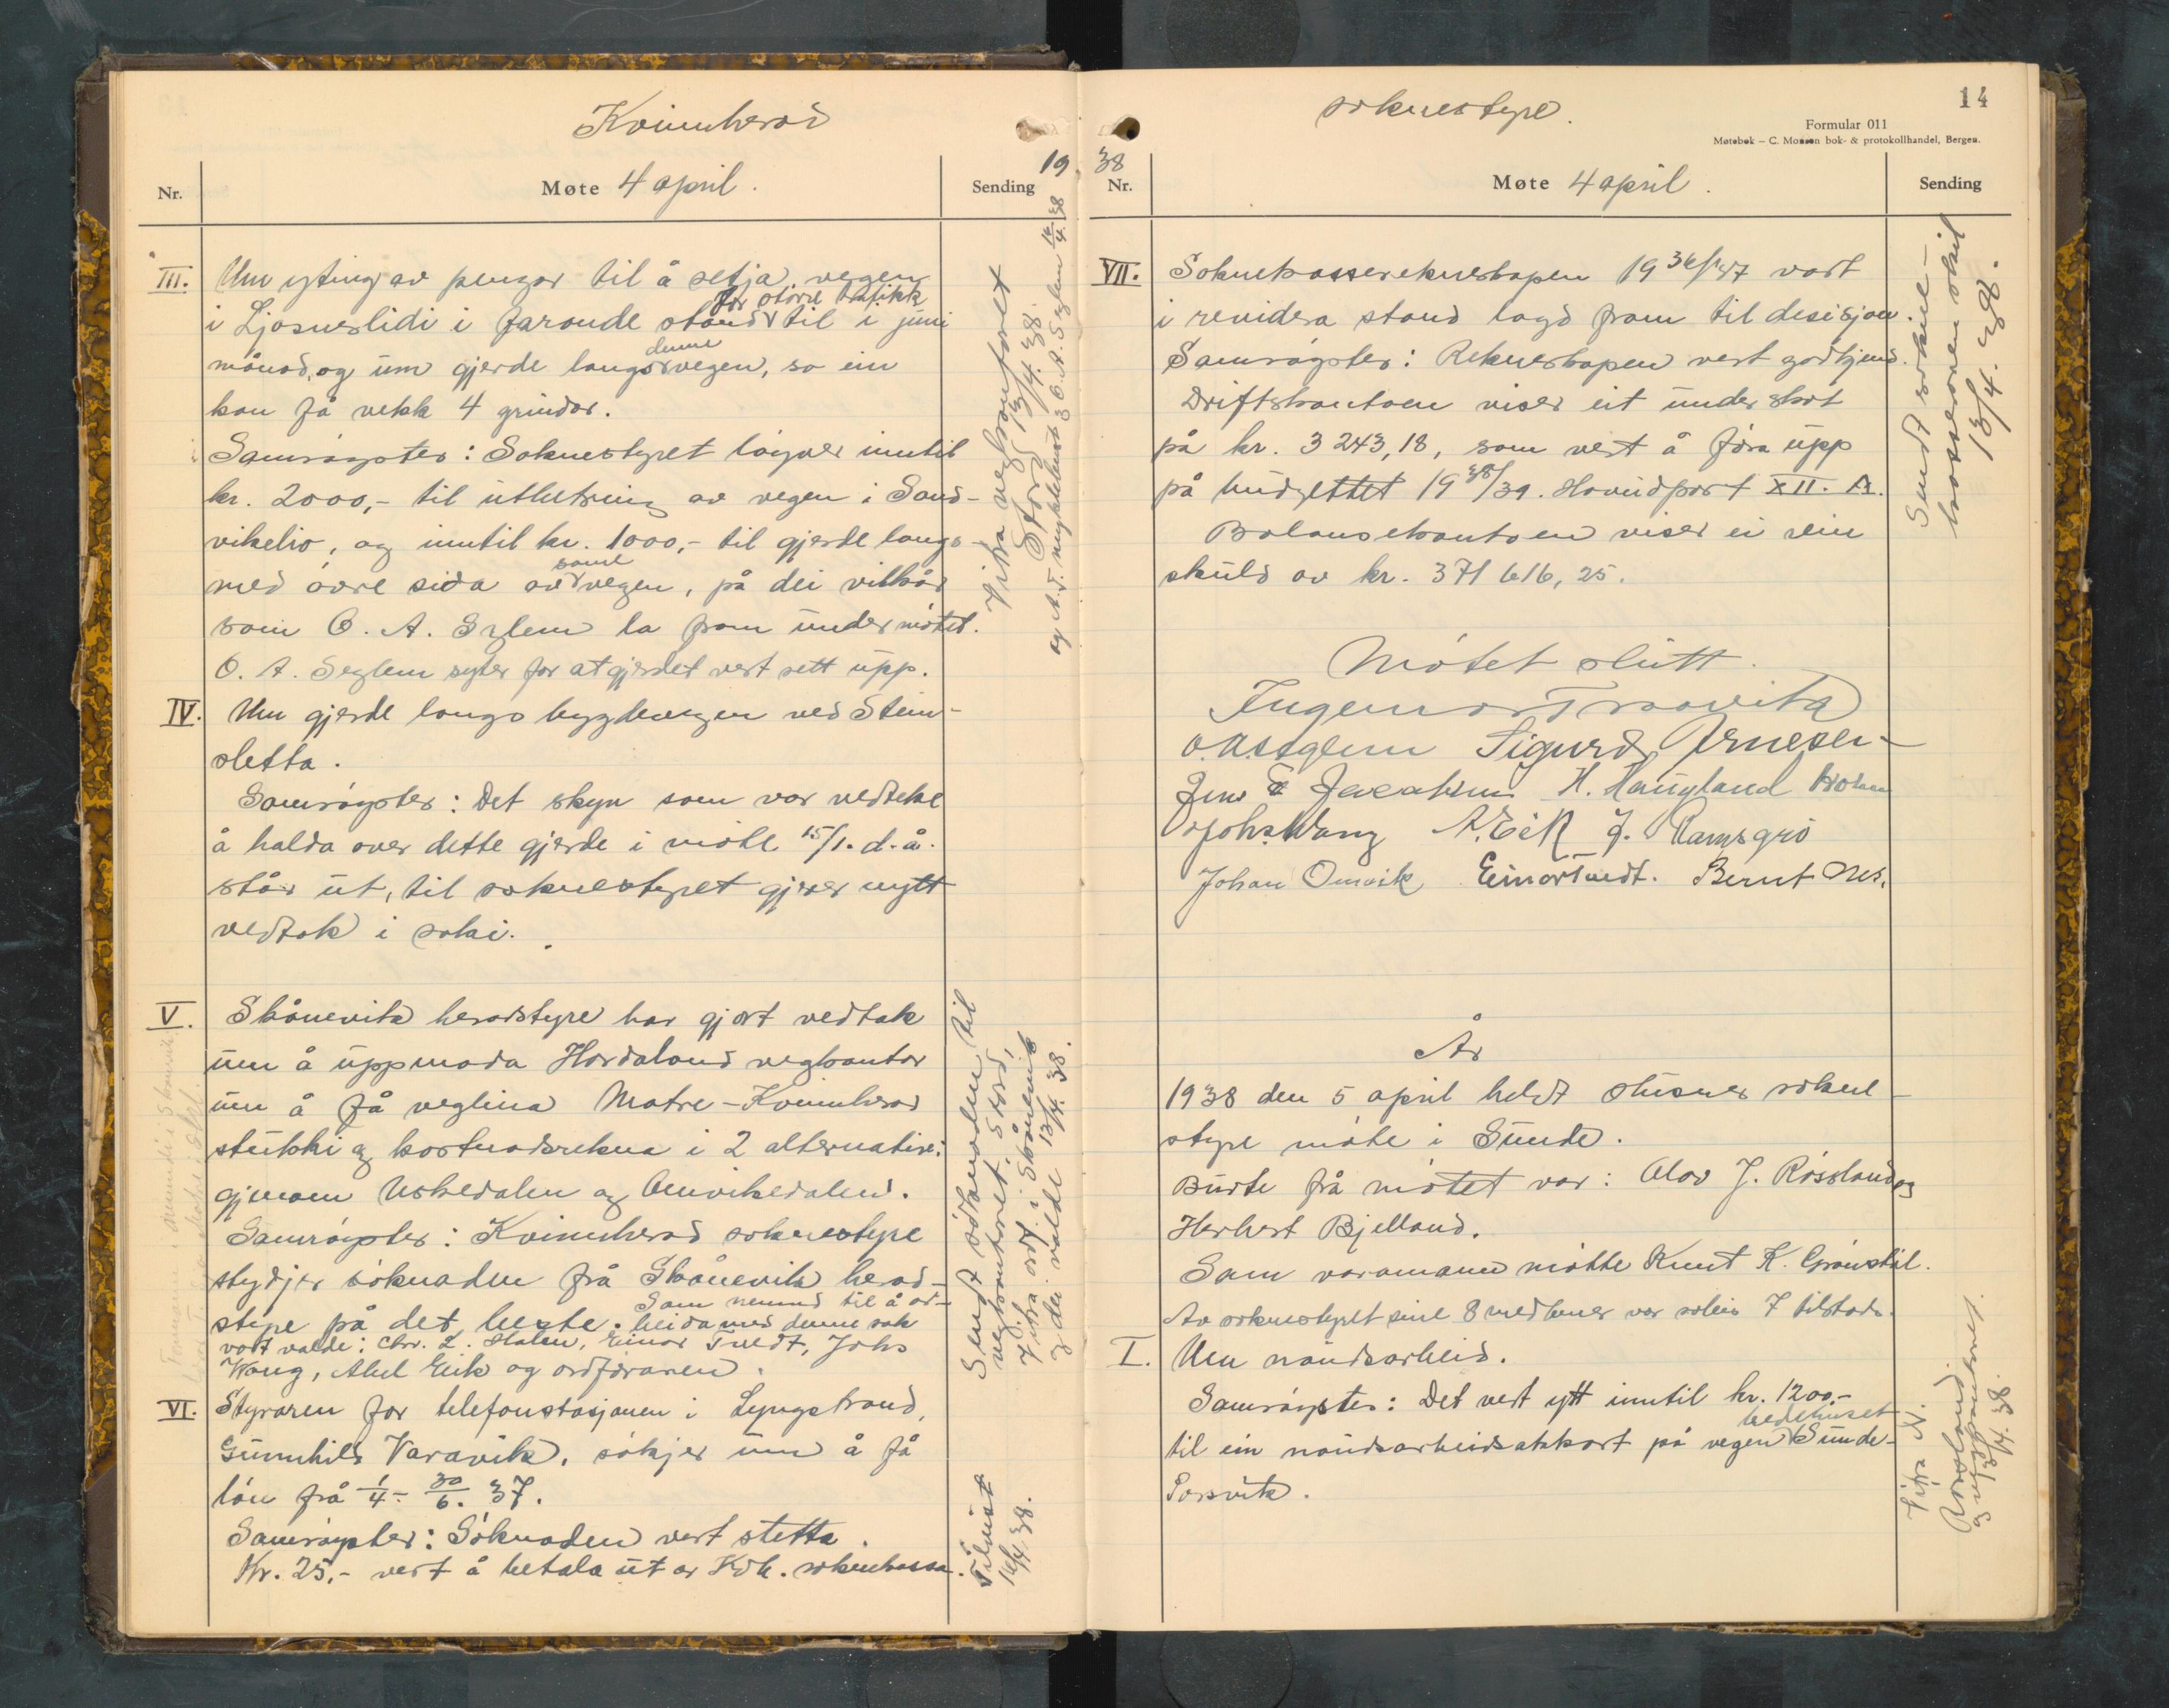 Kvinnherad
19
Nr.
Møte 4 april.
Sending
III.
Um yting av pengar til å setja vegen
for större trafikk
i Ljosneslidi i farande stand til i juni
månad, og um gjerde langs vegen, so ein
denne
kan få vekk 4 grindar.
Samröystes: Soknestyret löyver inntil
kr. 2000,- til utbetring av vegen i Sand-
vikelio, og inntil kr. 1000,- til gjerde langs
same
med övre sida av vegen, på dei vilkår
som O. A. Seglem la fram under mötet.
O. A. Seglem syter for at gjerdet vert sett upp.
Vitra vegkontoret
Stord 13/4. 38.
og A. T. Myklebust & O. A. Seglem 12/4. 38
IV.
Um gjerde langs bygdevegen ved Stein-
sletta.
Samröystes: Det skyn som var vedteke
å halda over dette gjerde i möte 15/1. d. å.
står ut, til soknestyret gjerer nytt
vedtak i saki.
V.
Skånevik heradstyre har gjort vedtak
um å uppmoda Hordaland vegkontor
um å få veglina Matre - Kvinnherad
stukki og kostnadsrekna i 2 alternativ:
gjenom Uskedalen og Omvikedalen.
Samröystes: Kvinnherad soknestyre
stydjer söknaden frå Skånevik herad-
styre på det beste. Som nemnd til å ar-
beida med denne sak
vart valde: Chr. L. Halsen, Einar Tvedt, Johs
Wang, Abel Eik og ordföraren.
Sendt södnaden til
vegkontoret, Stord,
Vitra ordf. i Skånevik
og dei valde 13/4. 38.
VI.
Styraren for telefonstasjonen i Lyngstrand,
Gunnhild Varavik, sökjer um å få
lön frå 1/4 - 30/6. 37.
Samröystes: Söknaden vert stetta.
Kr. 25,- vert å betala ut av Kvh. soknekassa.
Tilvist
16/4. 38.
soknestyre.
14
Formular 011
Møtebok - C. Monsen bok- & protokollhandel, Bergen.
38
Nr.
Møte 4 april.
Sending
VII.
Soknekasserekneskapen 1936/37 vart
i revidera stand lagd fram til desisjon.
Samröystes: Rekneskapen vert godkjend.
Driftskontoen viser eit underskot
på kr. 3243,18, som vert å föra upp
på budgettet 1938/39. Hovudpost XII. A.
Balansekontoen viser ei rein
skuld av kr. 371 616, 25.
Sendt sokne-
kasseraren utskil
13/4. 38.
Mötet slutt.
Ingemar Traavik
O. A. Seglem Sigurd Arnesen
Jens E Jacobsen H. Haugland
Johs. Wang A. Eik J. Ramsgrö
Johan Omvik Einar Tvedt. Bernt Nes.
År
1938 den 5 april heldt Husnes sokne-
styre möte i Sunde.
Burte frå mötet var: Olav J. Rössland og
Herbert Bjelland.
Som varamann mötte Knut K. Grönstöl.
Av soknestyret sine 8 medlemer var soleis 7 tilstade.
I.
Um naudsarbeid.
Samröystes: Det vert ytt inntil kr. 1200,-
bedehuset
til ein naudsarbeidsakkort på vegen Sunde-
Porsvik.
Vitra N.
Rössland
og vegkontoret
13/4. 38.